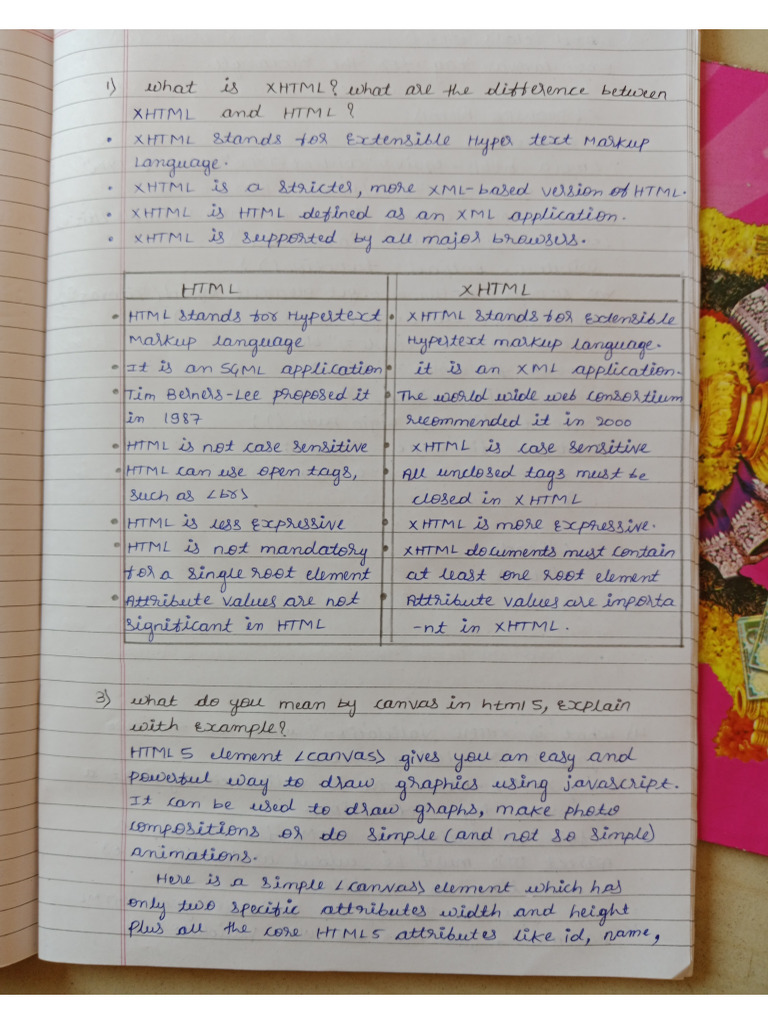 1) what is XHTML? what are the difference between
XHTML and HTML?
• XHTML stands for Extensible Hyper text Markup
Language.
• XHTML is a stricter, more XML-based version of HTML.
• XHTML is HTML defined as an XML application.
• XHTML is supported by all major browsers.
HTML
• HTML stands for Hypertext
Markup language
• It is an SGML application
• Tim Berners-Lee proposed it
in 1987
• HTML is not case sensitive
• HTML can use open tags,
such as <br>
• HTML is less expressive
• HTML is not mandatory
for a single root element
• Attribute values are not
significant in HTML
XHTML
• XHTML stands for Extensible
Hypertext markup language.
• it is an XML application.
• The world wide web consortium
recommended it in 2000
• XHTML is case sensitive
• All unclosed tags must be
closed in XHTML
• XHTML is more expressive.
• XHTML documents must contain
at least one root element
• Attribute values are importa
-nt in XHTML.
3) what do you mean by canvas in html5, explain
with example?
HTML5 element <canvas> gives you an easy and
powerful way to draw graphics using javascript.
It can be used to draw graphs, make photo
compositions or do simple (and not so simple)
animations.
Here is a simple <canvas> element which has
only two specific attributes width and height
plus all the core HTML5 attributes like id, name,